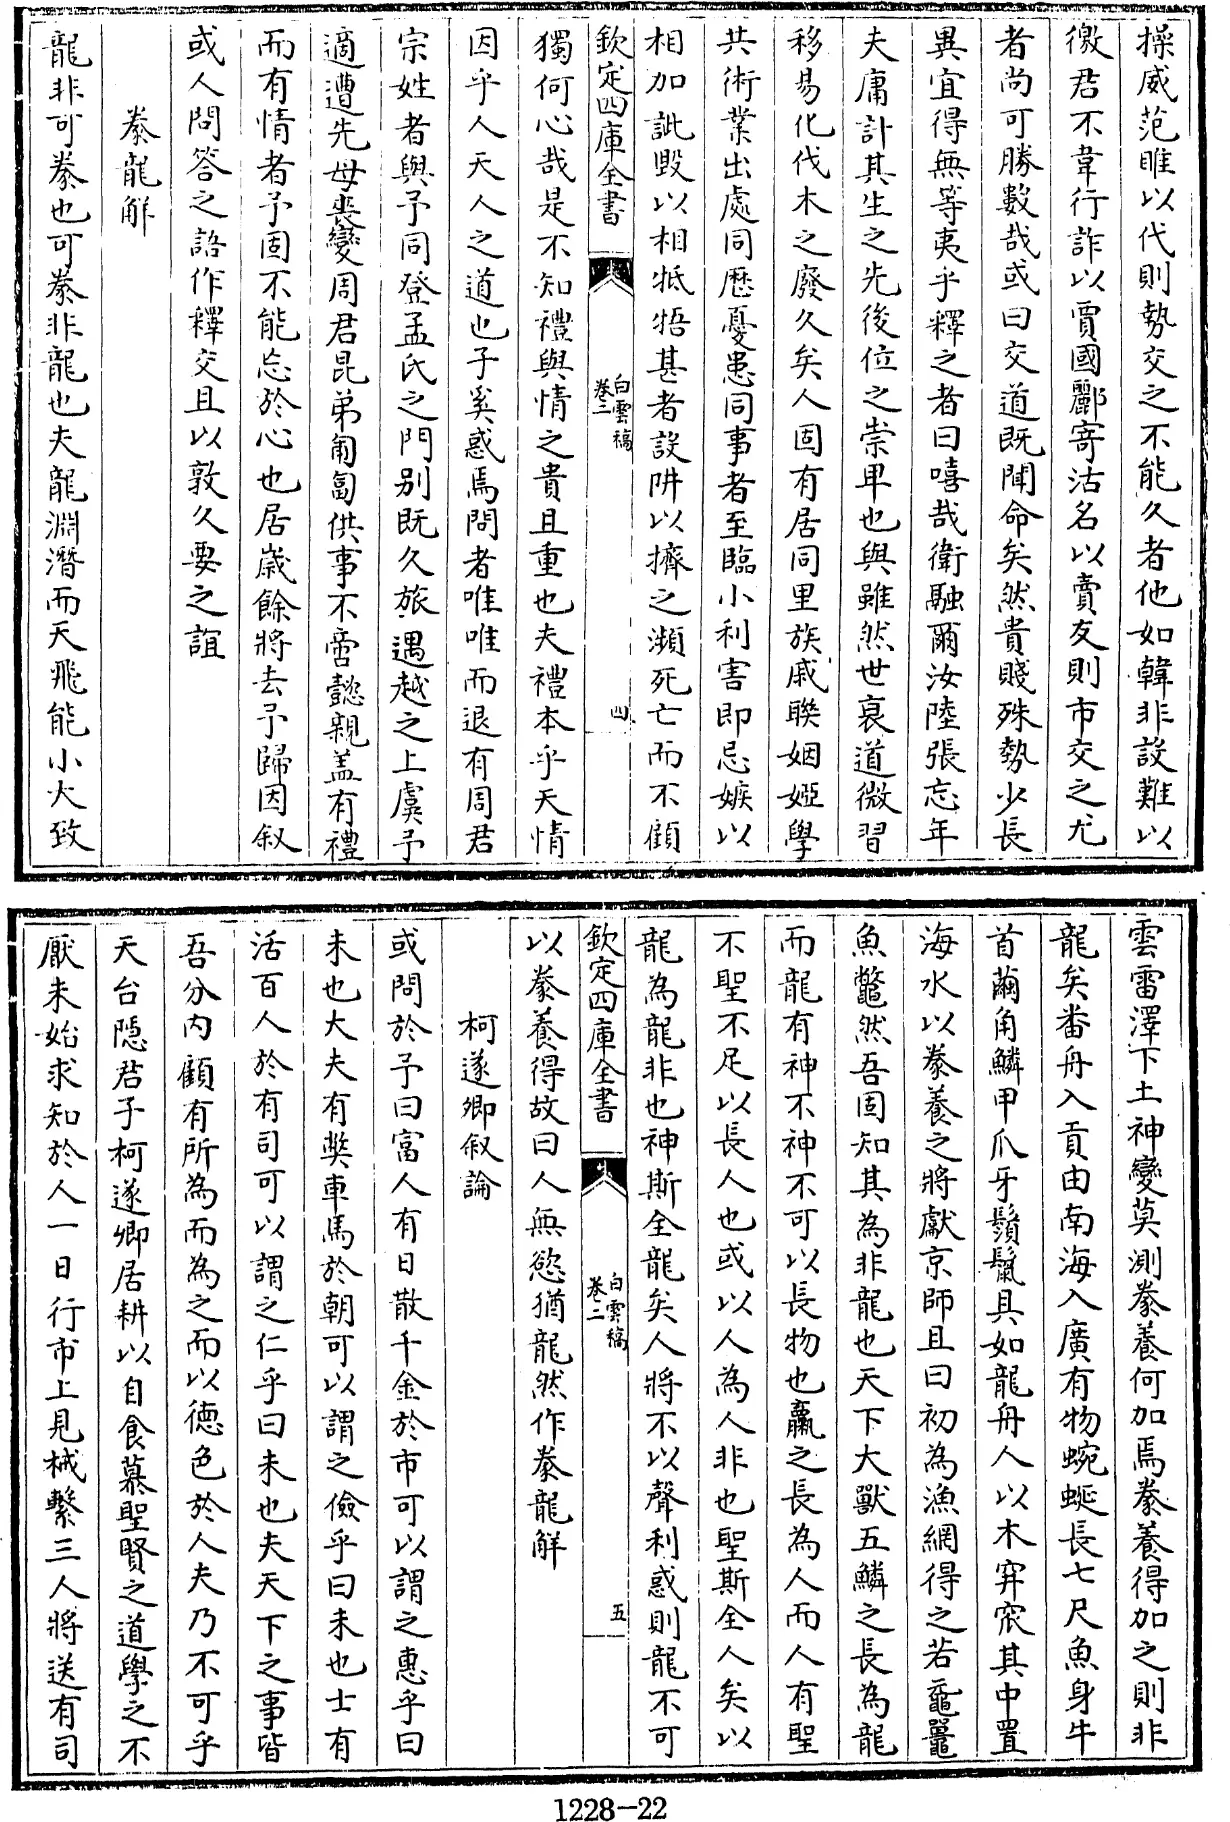 操威范睢以代則勢交之不能久者他如韓非設難以
徼君不韋行詐以賈國酈寄沽名以賣友則市交之尤
者尚可勝數哉或曰交道既聞命矣然貴賤殊勢少長
異宜得無等夷乎釋之者曰嘻哉衛融爾汝陸張忘年
夫庸計其生之先後位之崇卑也與雖然世衰道微習
移易化伐木之廢久矣人固有居同里族戚聯姻婭學
共術業出處同歷憂患同事者至臨小利害即忌嫉以
相加訿毀以相牴牾甚者設阱以擠之瀕死亡而不顧
欽定四庫全書
白雲稿
卷二
四
獨何心哉是不知禮與情之貴且重也夫禮本乎天情
因乎人天人之道也子奚惑焉問者唯唯而退有周君
宗姓者與予同登孟氏之門別既久旅遇越之上虞予
適遭先母喪變周君昆弟匍匐供事不啻懿親盖有禮
而有情者予固不能忘於心也居歲餘將去予歸因叙
或人問答之語作釋交且以敦久要之誼
豢龍解
龍非可豢也可豢非龍也夫龍淵潛而天飛能小大致
雲雷澤下土神變莫測豢養何加焉豢養得加之則非
龍矣番舟入貢由南海入廣有物蜿蜒長七尺魚身牛
首繭角鱗甲爪牙鬚鬣具如龍舟人以木穽䆲其中置
海水以豢養之將獻京師且曰初為漁網得之若黿鼉
魚鼈然吾固知其為非龍也天下大獸五鱗之長為龍
而龍有神不神不可以長物也臝之長為人而人有聖
不聖不足以長人也或以人為人非也聖斯全人矣以
龍為龍非也神斯全龍矣人將不以聲利惑則龍不可
欽定四庫全書
白雲稿
卷二
五
以豢養得故曰人無慾猶龍然作豢龍解
柯遂卿叙論
或問於予曰富人有日散千金於市可以謂之惠乎曰
未也大夫有獘車馬於朝可以謂之儉乎曰未也士有
活百人於有司可以謂之仁乎曰未也夫天下之事皆
吾分内顧有所為而為之而以德色於人夫乃不可乎
天台隱君子柯遂卿居耕以自食慕聖賢之道學之不
厭未始求知於人一日行市上見械繫三人將送有司
1228-22